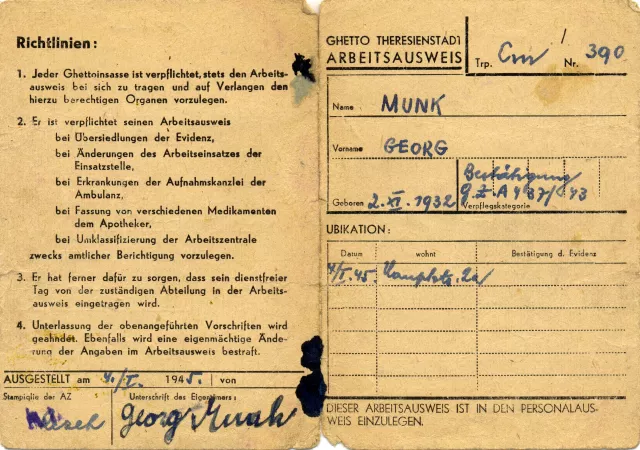 Richtlinien:
1. Jeder Ghettoinsasse ist verpflichtet, stets den Arbeits-
ausweis bei sich zu tragen und auf Verlangen den
hierzu berechtigten Organen vorzulegen.
2. Er ist verpflichtet seinen Arbeitsausweis
bei Übersiedlungen der Evidenz,
bei Änderungen des Arbeitseinsatzes der
Einsatzstelle,
bei Erkrankungen der Aufnahmskanzlei der
Ambulanz,
bei Fassung von verschiedenen Medikamenten
dem Apotheker,
bei Umklassifizierung der Arbeitszentrale
zwecks amtlicher Berichtigung vorzulegen.
3. Er hat ferner dafür zu sorgen, dass sein dienstfreier
Tag von der zuständigen Abteilung in der Arbeits-
ausweis eingetragen wird.
4. Unterlassung der obenangeführten Vorschriften wird
geahndet. Ebenfalls wird eine eigenmächtige Ände-
rung der Angaben im Arbeitsausweis bestraft.
AUSGESTELLT am 4./I. 1945. von
Stampiglie der AZ
Unterschrift des Eigentümers:
Georg Munk
GHETTO THERESIENSTADT
ARBEITSAUSWEIS
Trp. Nr. 390
Name MUNK
Vorname GEORG
Bestätigung
g.Z.A 437/43
Geboren 2. XI. 1932
Verpflegskategorie
UBIKATION:
Datum wohnt Bestätigung d. Evidenz
4/I. 45. 2a
DIESER ARBEITSAUSWEIS IST IN DEN PERSONALAUS-
WEIS EINZULEGEN.